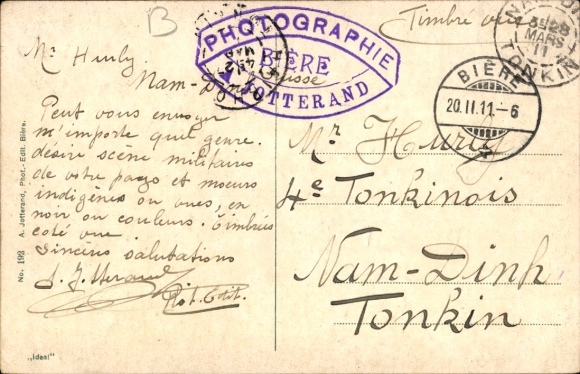 B
Timbre vue
PHOTOGRAPHIE
BIÈRE
Suisse
A. JOTTERAND
NAM-DINH
28
MARS
11
TONKIN
BIÈRE
20.II.11.-6
Mr Hurly
Nam-Dinh
Peut vous envoyer
n'importe quel genre.
désire scène militaires
de votre pays et moeurs
indigènes ou vues, en
noir ou couleurs. Timbrés
coté vue
Sincères salutations
A. Jotterand
Phot. Edit.
Mr Hurly
4e Tonkinois
Nam-Dinh
Tonkin
No. 193 A. Jotterand, Phot.- Edit. Bière.
„Ideal"